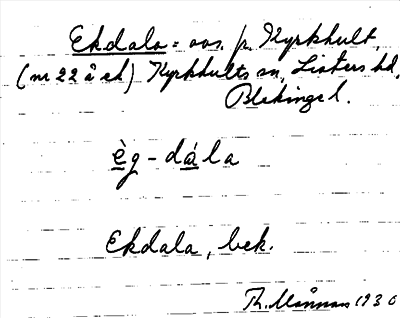 Ekdala = oos. p. Kyrkhult,
(nr 22 å ek) Kyrkhults sn, Listers hd,
Blekinge l.
èg - dála
Ekdala, bek.
Th. Månsson 1930